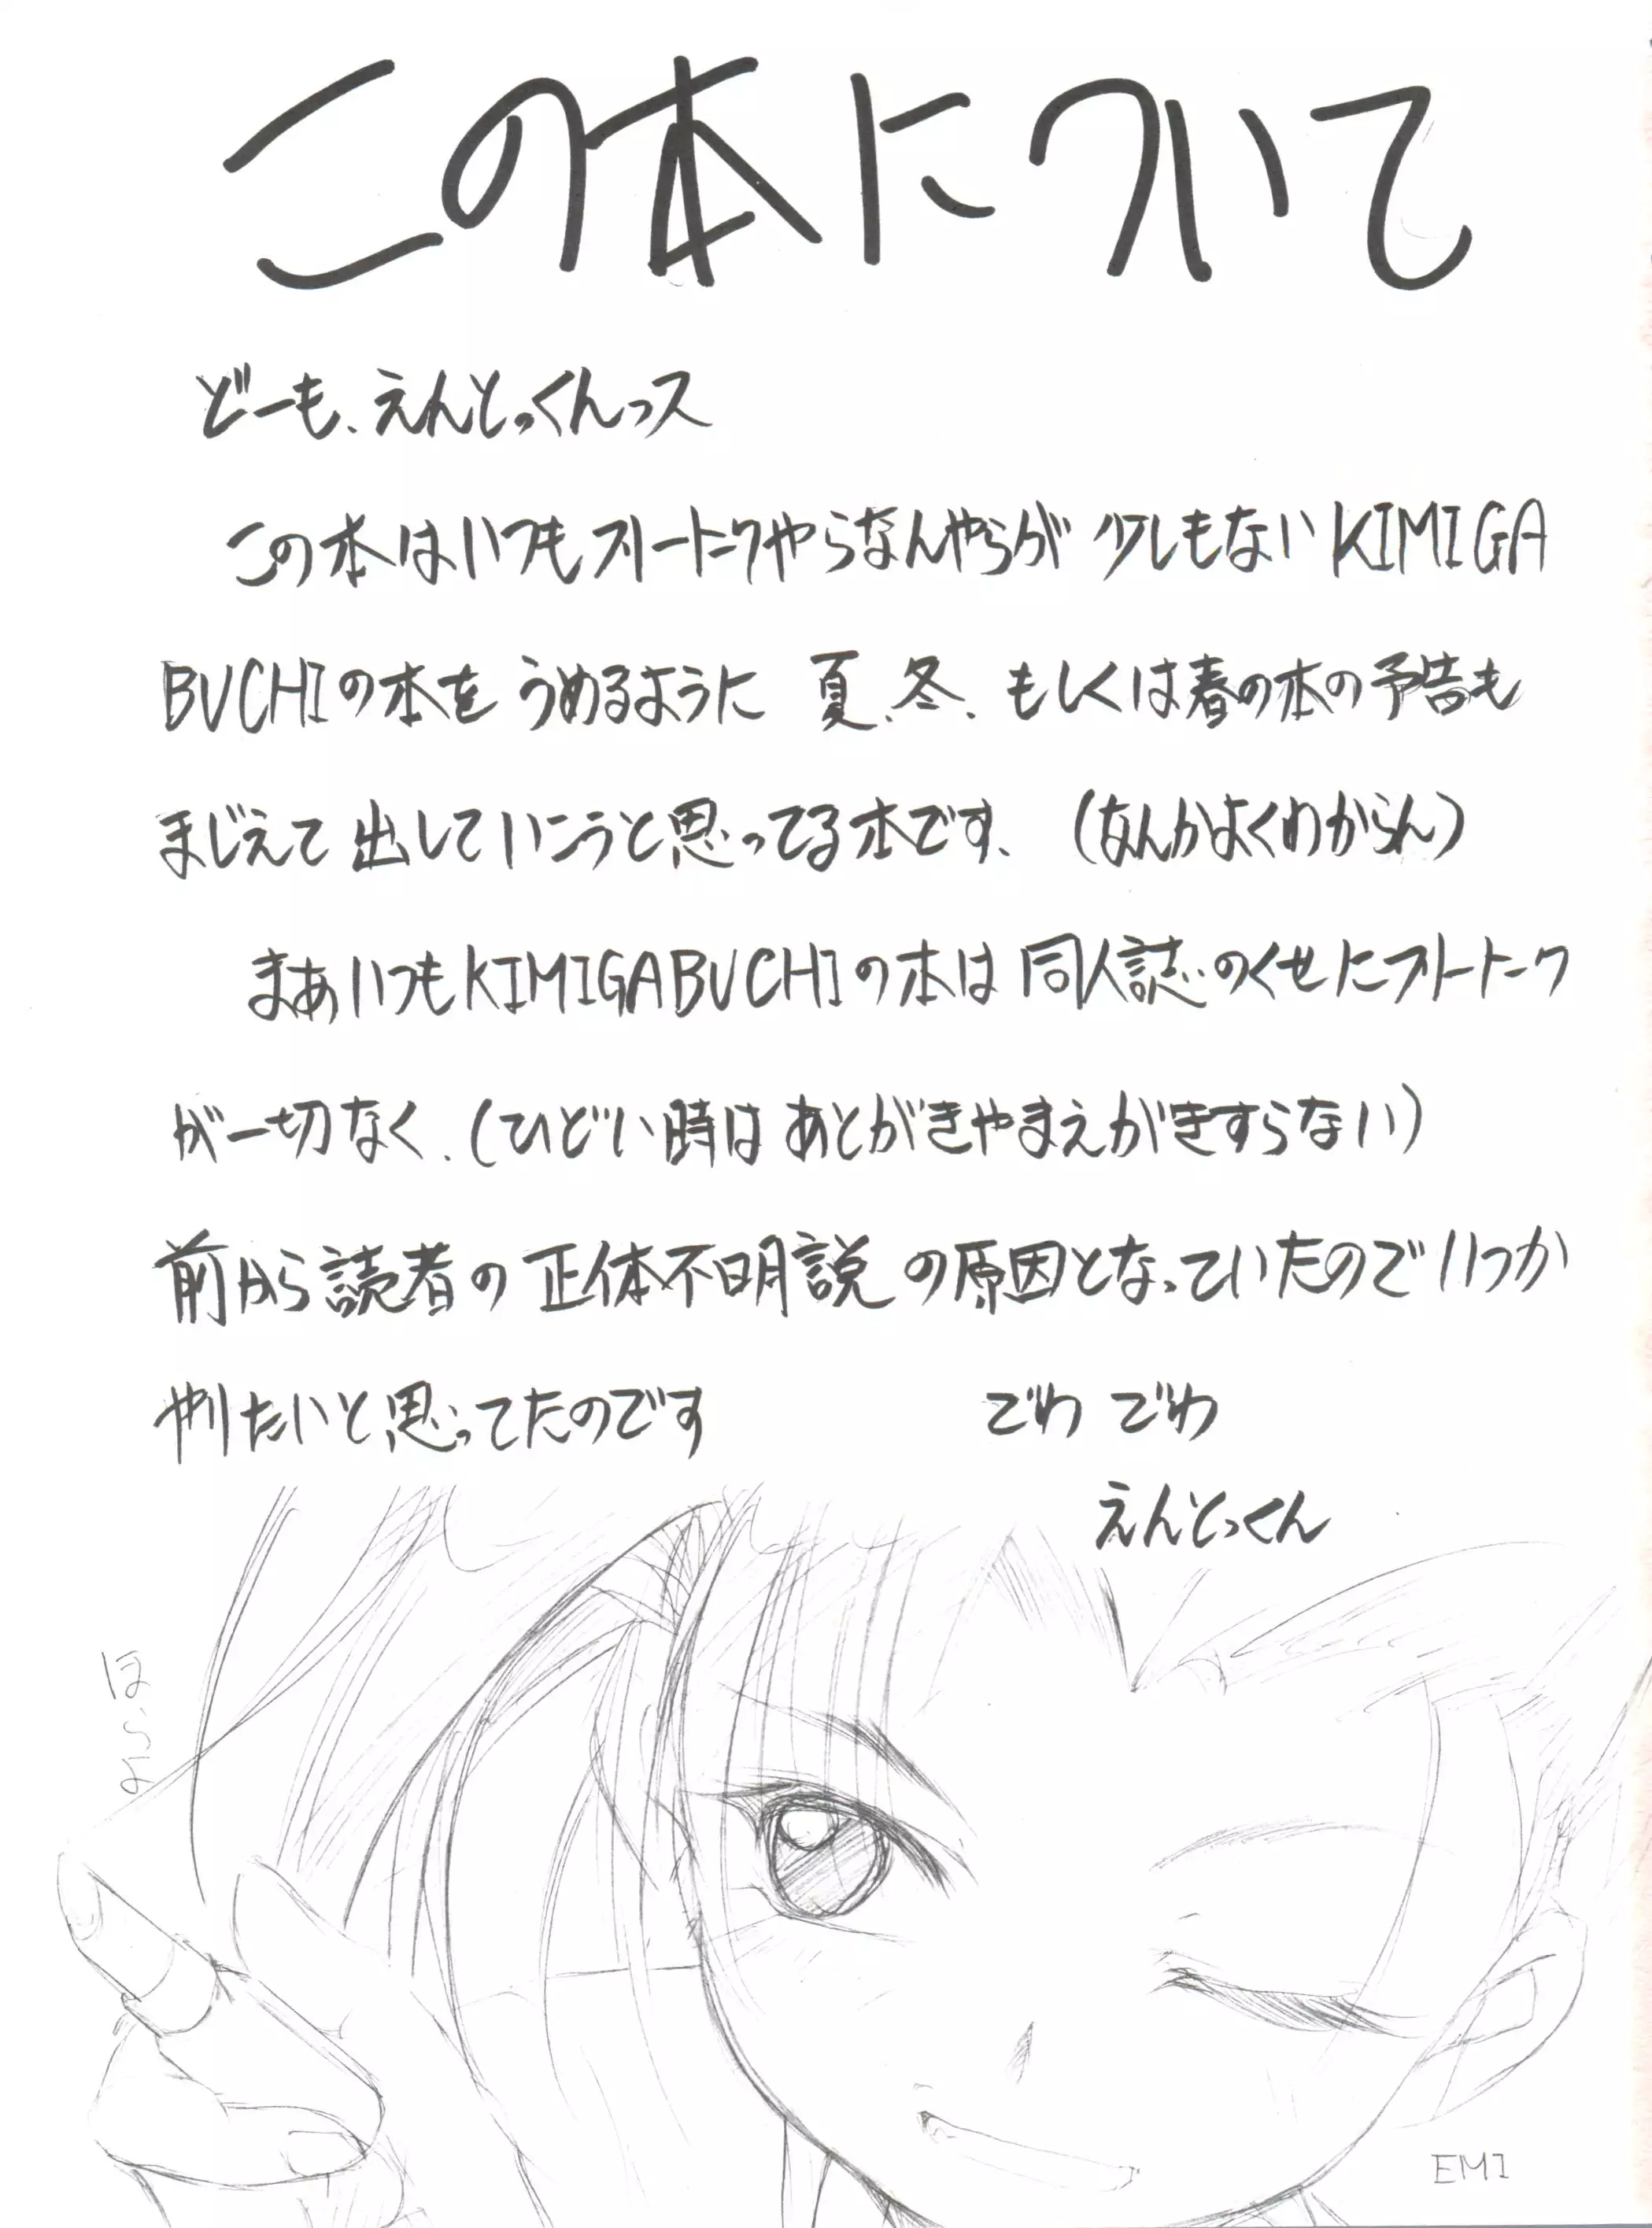 この本について
どーも、えんとっくんっス
この本はいつもフリートークやらなんやらが少しもないKIMIGA
BUCHIの本をうめるように 夏、冬、もしくは春の本の予告も
まじえて出していこうと思ってる本です、(なんかよくわからん)
まあいつもKIMIGABUCHIの本は同人誌のくせにフリートーク
が一切なく、(ひどい時はあとがきやまえがきすらない)
前から読者の正体不明説の原因となっていたのでいつか
やりたいと思ってたのです でわ でわ
えんとっくん
EMI